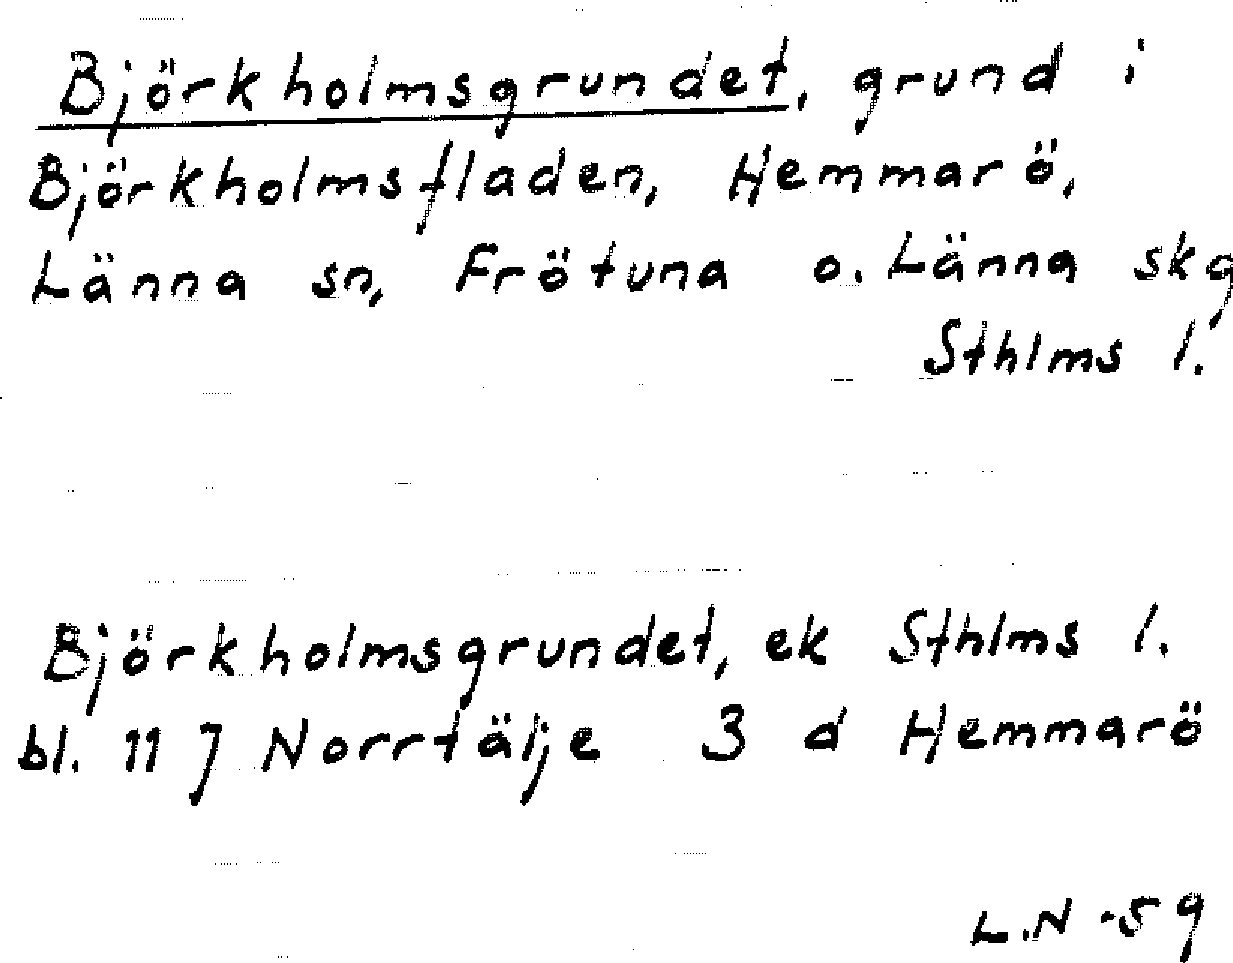 Björkholmsgrundet, grund i
Björkholmsfladen, Hemmarö,
Länna sn, Frötuna o. Länna skg
Sthlms l.
Björkholmsgrundet, ek Sthlms l.
bl. 11 J Norrtälje 3 d Hemmarö
L.N -59